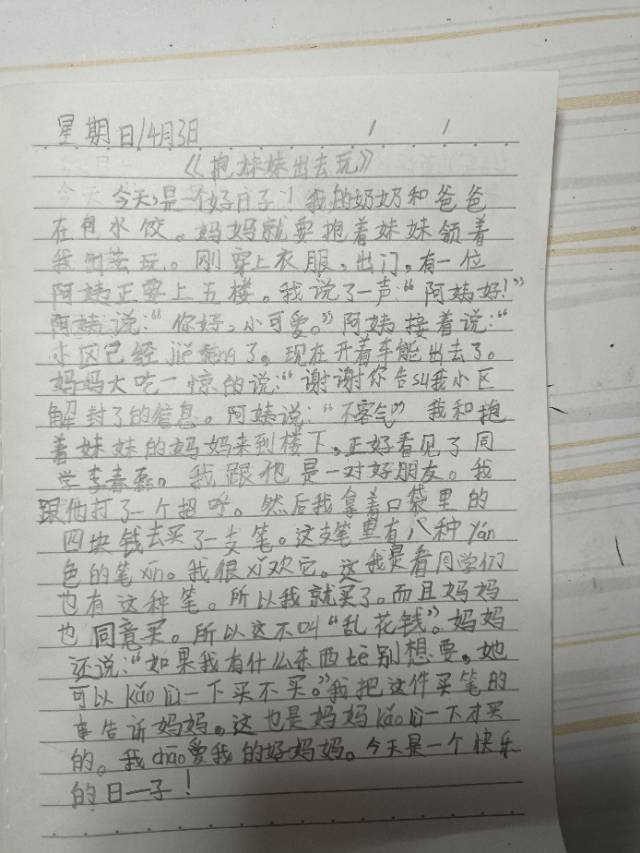 星期日14月3日
《抱妹妹出去玩》
今天是一个好日子!我的奶奶和爸爸
在包水饺。妈妈就要抱着妹妹领着
我出去玩。刚穿上衣服,出门,有一位
阿姨正要上五楼。我说了一声:“阿姨好!”
阿姨说:“你好,小可爱。”阿姨接着说:“
小区已经 了,现在开着车能出去了。
妈妈大吃一惊的说:“谢谢你告sù我小区
解封了的信息。阿姨说:“不客气”我和抱
着妹妹的妈妈来到楼下,正好看见了同
学李春磊。我跟他是一对好朋友。我
跟他打了一个招呼。然后我拿着口袋里的
四块钱去买了一支笔。这支笔里有八种yán
色的笔xīn。我很xǐ欢它。这我是看同学们
也有这种笔。所以我就买了。而且妈妈
也同意买。所以这不叫“乱花钱”。妈妈
还说:“如果我有什么东西tè别想要,她
可以kǎolǜ一下买不买。”我把这件买笔的
事告诉妈妈,这也是妈妈kǎolǜ一下才买
的。我chāo爱我的好妈妈。今天是一个快乐
的日子!